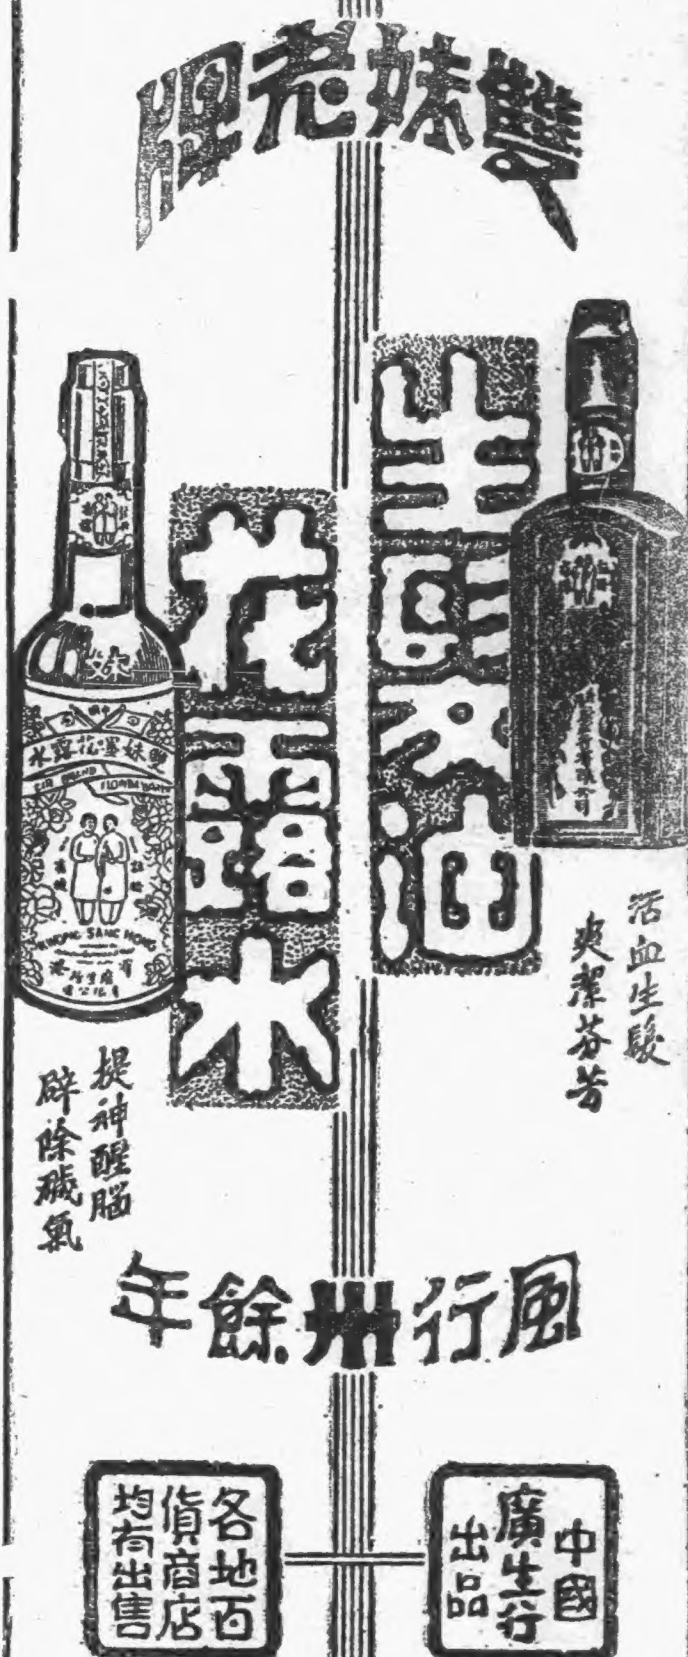 雙妹老牌
生髮油
活血生髮
爽潔芬芳
花露水
妹
雙妹嚜花露水
KWONG SANG HONG
提神醒腦
辟除穢氣
風行卅餘年
中國
廣生行
出品
各地百
貨商店
均有出售